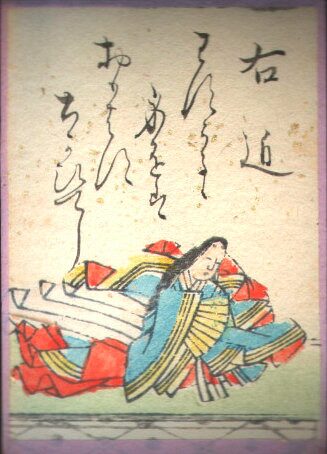 右近
わすらるゝ
身をは
おもはす
ちかひてし